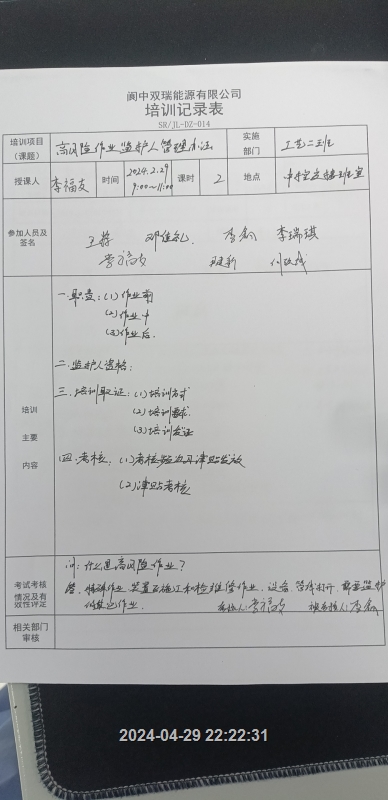 阆中双瑞能源有限公司
培训记录表
SR/JL-DZ-014
培训项目（课题） 高风险作业监护人管理办法 实施部门 工艺二班
授课人 李福友 时间 2024.2.29 9:00~11:00 课时 2 地点
参加人员及签名
李瑞琪
培训主要内容
一.职责:(1)作业前
(2)作业中
(3)作业后.
二.监护人资格:
三.培训取证:(1)培训方式
(2)培训要求
(3)培训发证
四.考核:(1)考核 津贴发放
(2)津贴考核
考试考核情况及有效性评定
问:什么是高风险作业?
答.特殊作业,装置 施工和检维修作业,设备、管线打开,
其它作业.
相关部门审核
2024-04-29 22:22:31